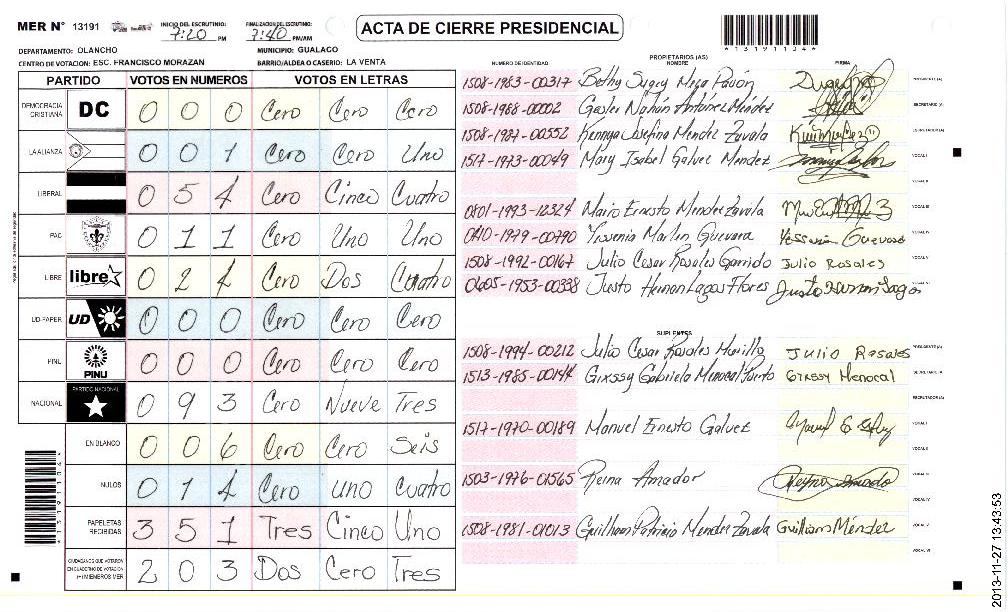 MER N° 13191 INICIO DEL ESCRUTINIO: 7:20 PM FINALIZACION DEL ESCRUTINIO: 7:40 PM/AM ACTA DE CIERRE PRESIDENCIAL
*13191104*
DEPARTAMENTO: OLANCHO MUNICIPIO: GUALACO
CENTRO DE VOTACION: ESC. FRANCISCO MORAZAN BARRIO/ALDEA O CASERIO: LA VENTA
PARTIDO VOTOS EN NUMEROS VOTOS EN LETRAS
DEMOCRACIA CRISTIANA DC 0 0 0 Cero Cero Cero
LA ALIANZA 0 0 1 Cero Cero Uno
LIBERAL 0 5 4 Cero Cinco Cuatro
PAC 0 1 1 Cero Uno Uno
LIBRE libre 0 2 4 Cero Dos Cuatro
UD-FAPER UD 0 0 0 Cero Cero Cero
PINU PINU 0 0 0 Cero Cero Cero
NACIONAL PARTIDO NACIONAL 0 9 3 Cero Nueve Tres
EN BLANCO 0 0 6 Cero Cero Seis
NULOS 0 1 4 Cero uno Cuatro
PAPELETAS RECIBIDAS 3 5 1 Tres Cinco Uno
CIUDADANOS QUE VOTARON EN CUADERNO DE VOTACION (+) MIEMBROS MER 2 0 3 Dos Cero Tres
PROPIETARIOS (AS)
NUMERO DE IDENTIDAD NOMBRE FIRMA
1508-1983-00317 Bethy Sugey Meza Pavón PRESIDENTE (A)
1508-1988-00002 Gesler Nahún Antúnez Méndez SECRETARIO (A)
1508-1987-00552 Kennya Josefina Mendez Zavala ESCRUTADOR (A)
1517-1973-00049 Mary Isabel Galvez Mendez VOCAL I
VOCAL II
0801-1993-12324 Mairo Ernesto Mendez Zavala VOCAL III
1979-00790 Yessenia Marlen Guevara Yessenia Guevara VOCAL IV
1508-1992-00167 Julio Cesar Rosales Garrido Julio Rosales VOCAL V
0605-1953-00338 Justo Hernan Lagos Flores Justo Hernan Lagos VOCAL VI
SUPLENTES
1508-1994-00212 Julio Cesar Rosales Murillo Julio Rosales PRESIDENTE (A)
1513-1985-00144 Gixssy Gabriela Menocal Puerto Gixssy Menocal SECRETARIO/A
ESCRUTADOR (A)
1517-1970-00189 Manuel Ernesto Galvez VOCAL I
VOCAL II
1503-1976-01565 Reina Amador Reyna Amador VOCAL III
VOCAL IV
1508-1981-01013 Guillham Patricio Mendez Zavala Guilliam Méndez VOCAL V
VOCAL VI
*13191104*
2013-11-27 13:43:53